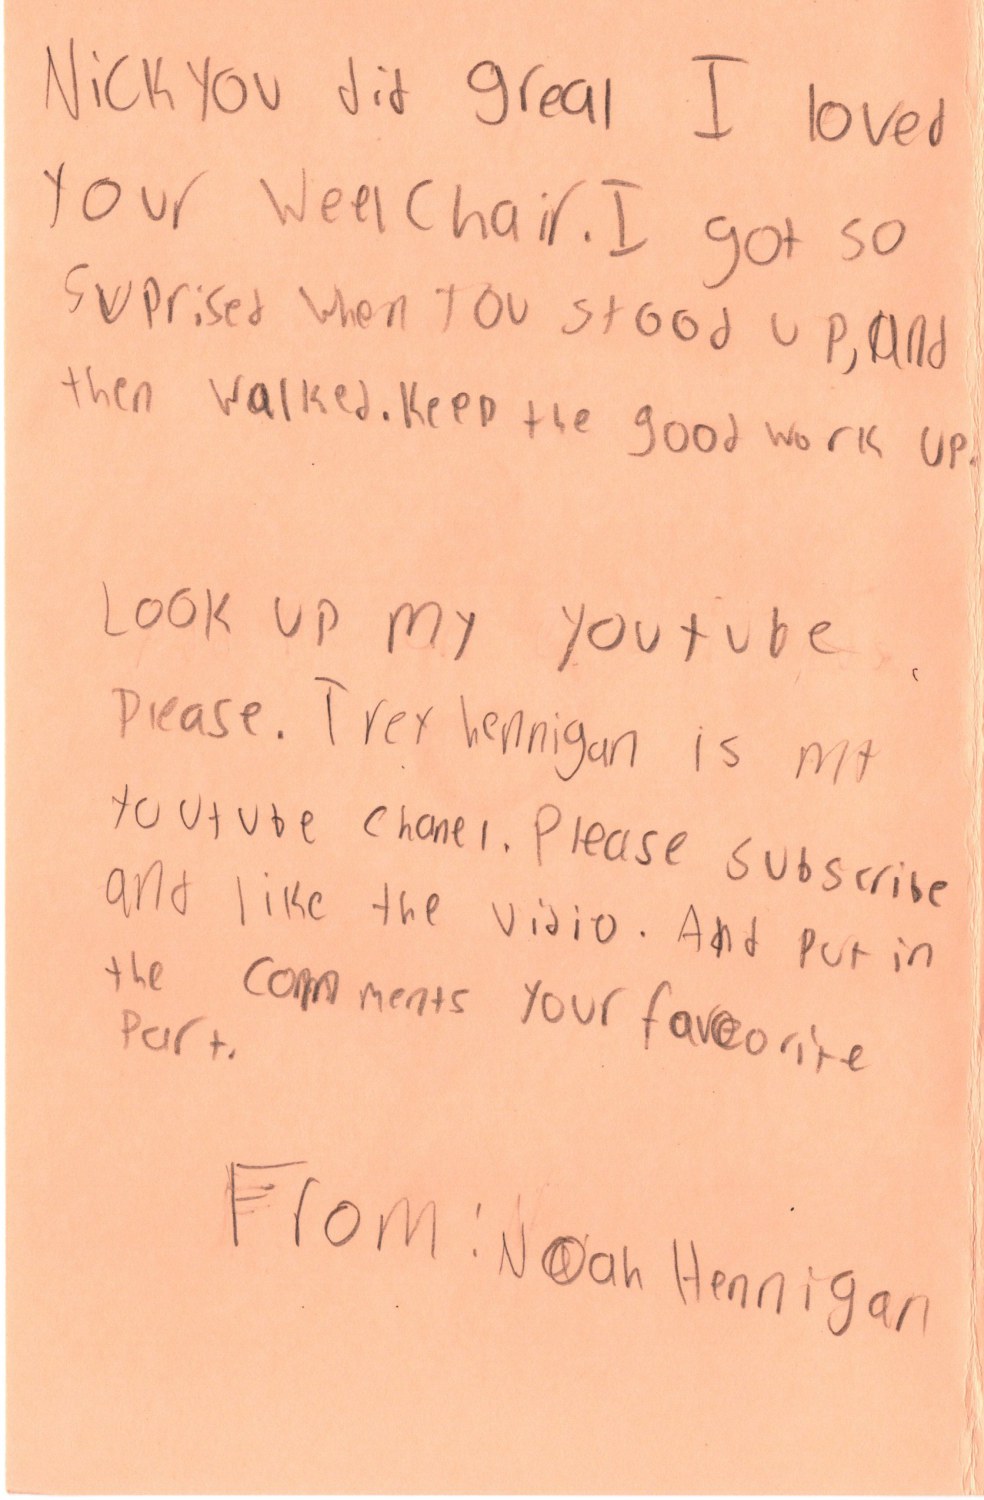 Nick you did great I loved
your weelchair. I got so
suprised when you stood up, and
then walked. Keep the good work up.
Look up my youtube
please. Trey hennigan is my
youtube chanel. Please subscribe
and like the vidio. And put in
the comments your faveorite
part.
From: Noah Hennigan